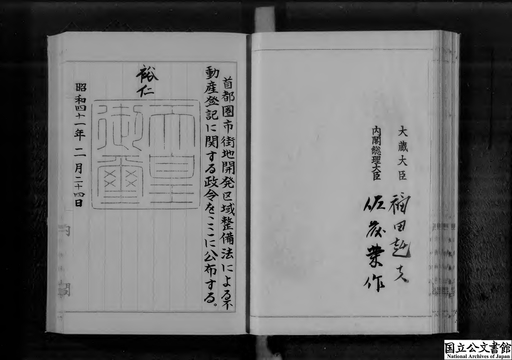 大蔵大臣 福田赳夫
内閣総理大臣 佐藤榮作
首都圏市街地開発区域整備法による不
動産登記に関する政令をここに公布する。
裕仁
天皇
御璽
昭和四十一年二月二十四日
国立公文書館
National Archives of Japan